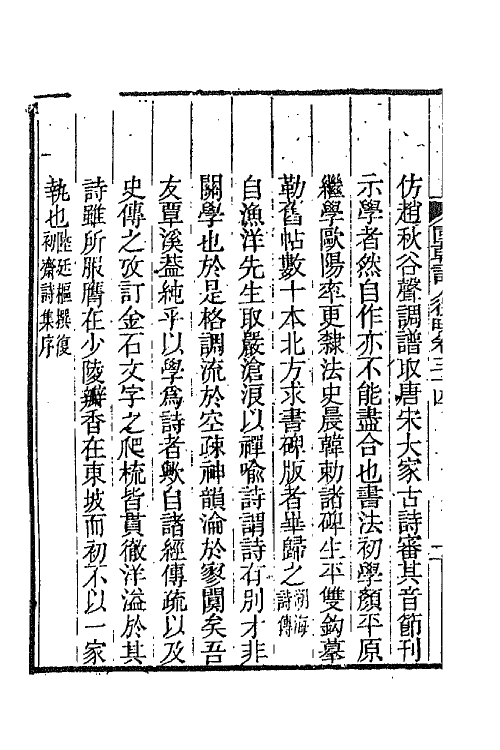 仿趙秋谷聲調譜取唐宋大家古詩審其音節刊
示學者然自作亦不能盡合也書法初學顏平原
繼學歐陽率更隸法史晨韓勅諸碑生平雙鈎摹
勒舊帖數十本北方求書碑版者畢歸之湖海詩傳
自漁洋先生取嚴滄浪以禪喻詩謂詩有別才非
關學也於是格調流於空疎神韻淪於寥闃矣吾
友覃溪葢純乎以學爲詩者歟自諸經傳疏以及
史傳之攷訂金石文字之爬梳皆貫徹洋溢於其
詩雖所服膺在少陵瓣香在東坡而初不以一家
執也陸廷樞撰復初齋詩集序